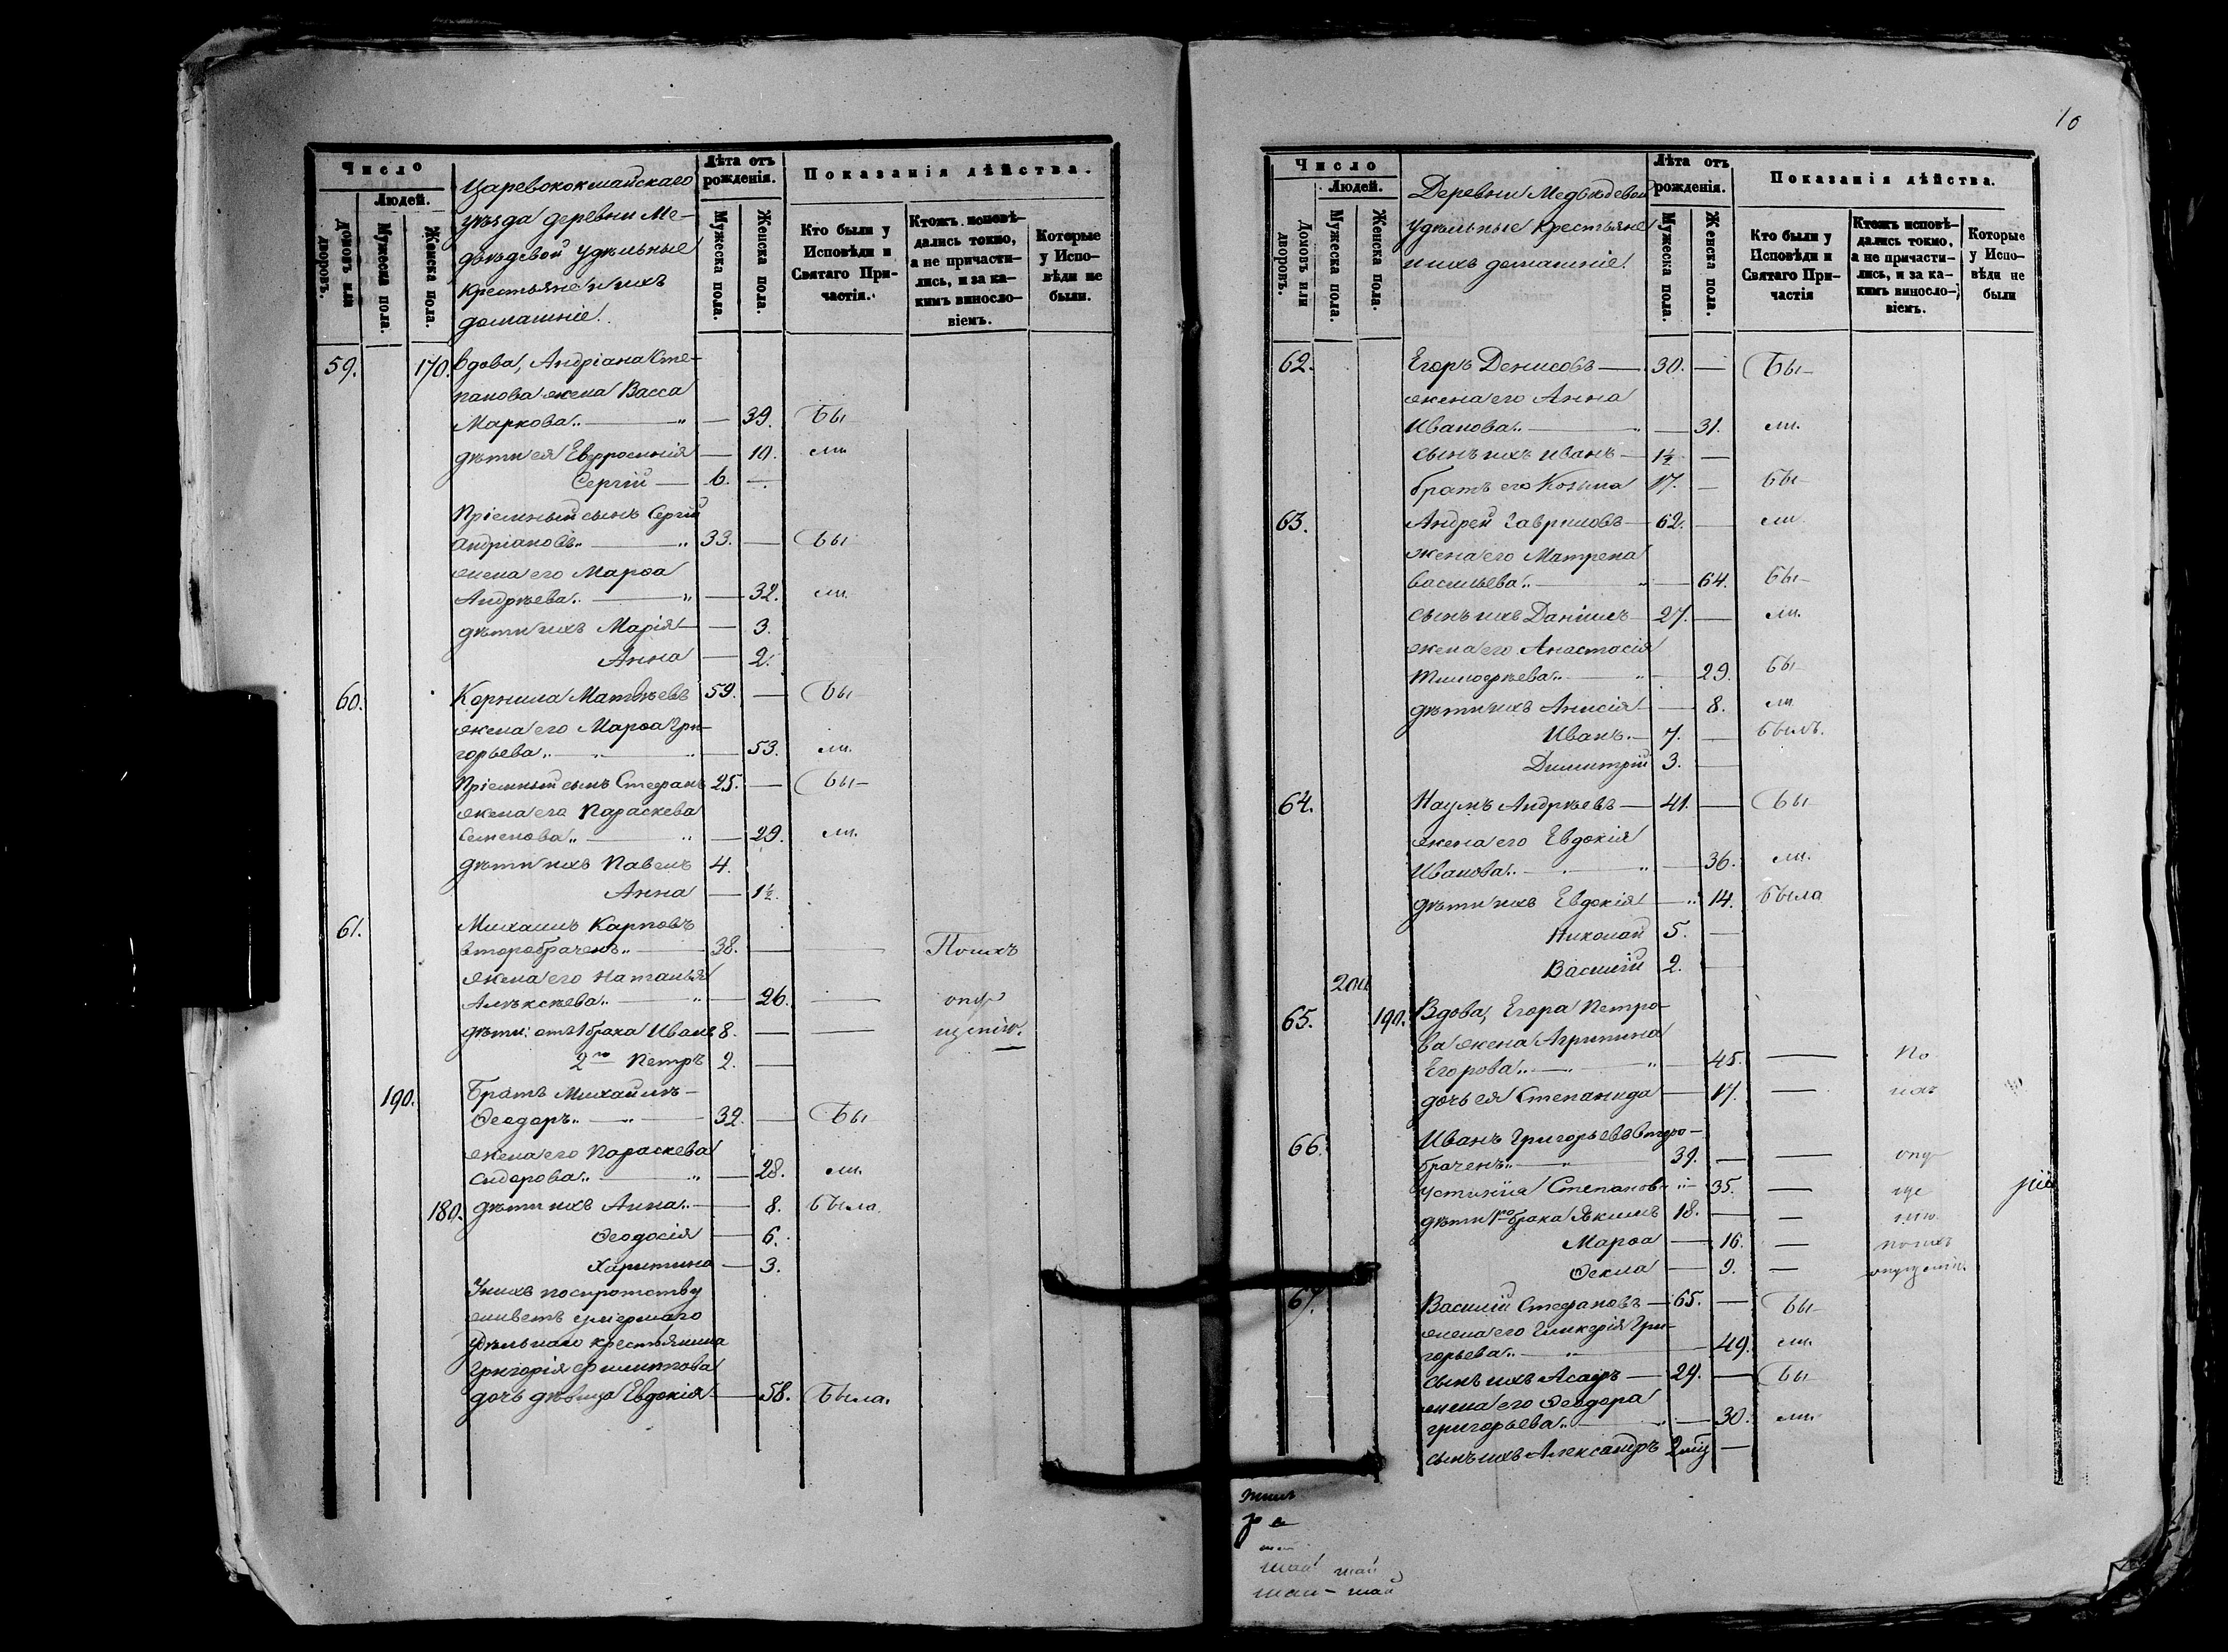 10
Число
Людей.
Домовъ или дворовъ.
Мужеска пола.
Женска пола.
Царевококшайскаго
уѣзда деревни Ме-
двѣдевой Удѣльные
Крестьяне и ихъ
домашніе.
Лѣта отъ рожденія.
Мужеска пола.
Женска пола.
Показанія дѣйства.
Кто были у Исповѣди и Святаго Причастія.
Ктожъ исповѣдались токмо, а не причастились, и за какимъ винословіемъ.
Которые у Исповѣди не были.
59. 170. Вдова, Андріана Сте-
панова жена Васса
Маркова.. — 39. Бы
дѣти ея Евфросинія — 10. ли.
Сергій — 6. —
Пріемный сынъ Сергій
Андріановъ.. 33. — Бы
жена его Марѳа
Андрѣева.. — 32. ли.
дѣти ихъ Марія — 3.
Анна — 2.
60. Корнила Матвѣевъ 59. — Бы
жена его Марѳа Гри-
горьева.. — 53. ли.
Пріемный сынъ Стефанъ 25. — Бы-
жена его Параскева
Семенова.. — 29. ли.
дѣти ихъ Павелъ 4.
Анна — 1½.
61. Михаилъ Карповъ
второбраченъ.. 38. — — Поихъ
жена его Наталья
Алѣксѣева.. — 26. — опу
дѣти: отъ 1 брака Иванъ 8. — — щенію.
2го Петръ 2. —
190. Братъ Михаилъ-
Ѳеодоръ.. 32. — Бы
жена его Параскева
Сидорова.. — 28. ли.
180. дѣти ихъ Анна.. — 8. Была.
Ѳеодосія — 6.
Харитина — 3.
У нихъ по сиротству
живетъ умершаго
удѣльнаго крестьянина
Григорія Филиппова
дочь дѣвица Евдокія — 58. Была.
Число
Людей.
Домовъ или дворовъ.
Мужеска пола.
Женска пола.
Деревни Медвѣдевой
Удѣльные Крестьяне
и ихъ домашніе.
Лѣта отъ рожденія.
Мужеска пола.
Женска пола.
Показанія дѣйства.
Кто были у Исповѣди и Святаго Причастія
Ктожъ исповѣдались токмо, а не причастились, и за какимъ винословіемъ.
Которые у Исповѣди не были
62. Егоръ Денисовъ — 30. — Бы-
жена его Анна
Иванова.. — 31. ли.
сынъ ихъ Иванъ — 1½ —
братъ его Козьма 17. — Бы-
63. Андрей Гавриловъ — 62. — ли.
жена его Матрена
Васильева.. — 64. Бы-
сынъ ихъ Даніилъ 27. — ли.
жена его Анастасія
Тимофѣева.. — 29. Бы
дѣти ихъ Анисія — 8. ли
Иванъ. — 7. — Былъ.
Димитрій 3. —
64. Наумъ Андрѣевъ — 41. — Бы
жена его Евдокія
Иванова.. — 36. ли.
дѣти ихъ Евдокія — 14. Была
Николай 5. —
200. Василій 2. —
65. 190. Вдова, Егора Петро-
ва жена Агрипина
Егорова.. — 45. — По
дочь ея Степанида — 17. — ихъ
66. Иванъ Григорьевъ второ-
браченъ.. 39. — — опу
Устинія Степанов- 35. — ще
дѣти 1го брака Якимъ 18. — — нію.
Марѳа — 16. — поихъ
Ѳекла — 9. — опущенію.
67. Василій Стефановъ — 65. — Бы-
жена его Гликерія Гри-
горьева.. — 49. ли.
сынъ ихъ Асафъ — 29. — Бы
жена его Ѳеодора
Григорьева.. — 30. ли.
сынъ ихъ Александръ 2 мц —
шай шай
шай - шай